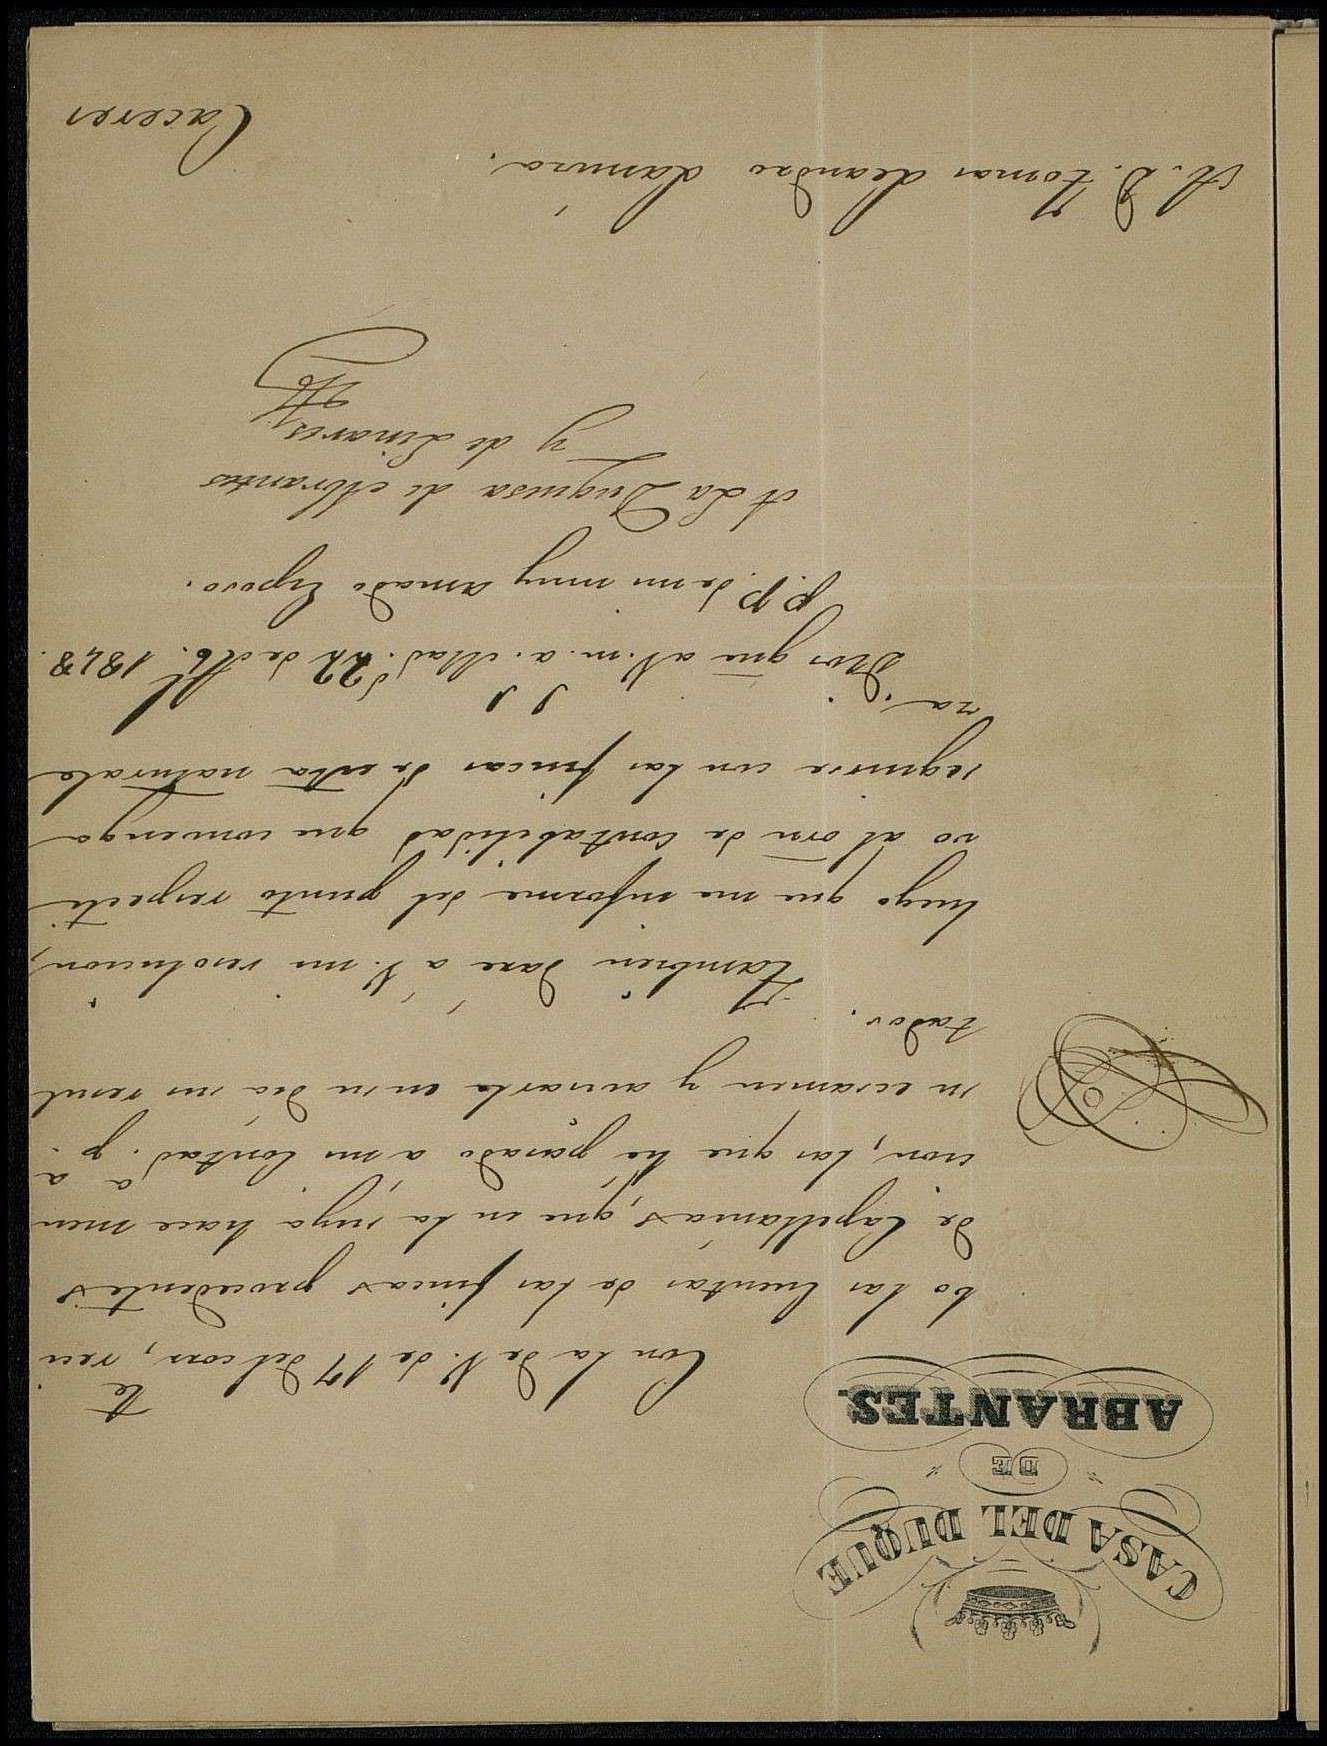 CASA DEL DUQUE
DE
ABRANTES.
Con la de V. de 17 del corr.te, reci
bo las Cuentas de las fincas procedentes
de Capellanías, que en la suya hace men
cion, las que hé pasado á mi Contad.a p.a
su ecsamen y avisarle en su dia su resul
tado.
Tambien dare á V. mi resolucion,
luego que me informe del punto respecti
vo al orn de contabilidad que convenga
seguirse con las fincas de esta naturale
za.
Dios gue á V. m. a. Mad.d 22 de Ab.l 1848.
p. p. de mi muy amado Esposo.
A La Duquesa de Abrantes
y de Linares
A. D. Tomas Leandro Lamira.
Caceres